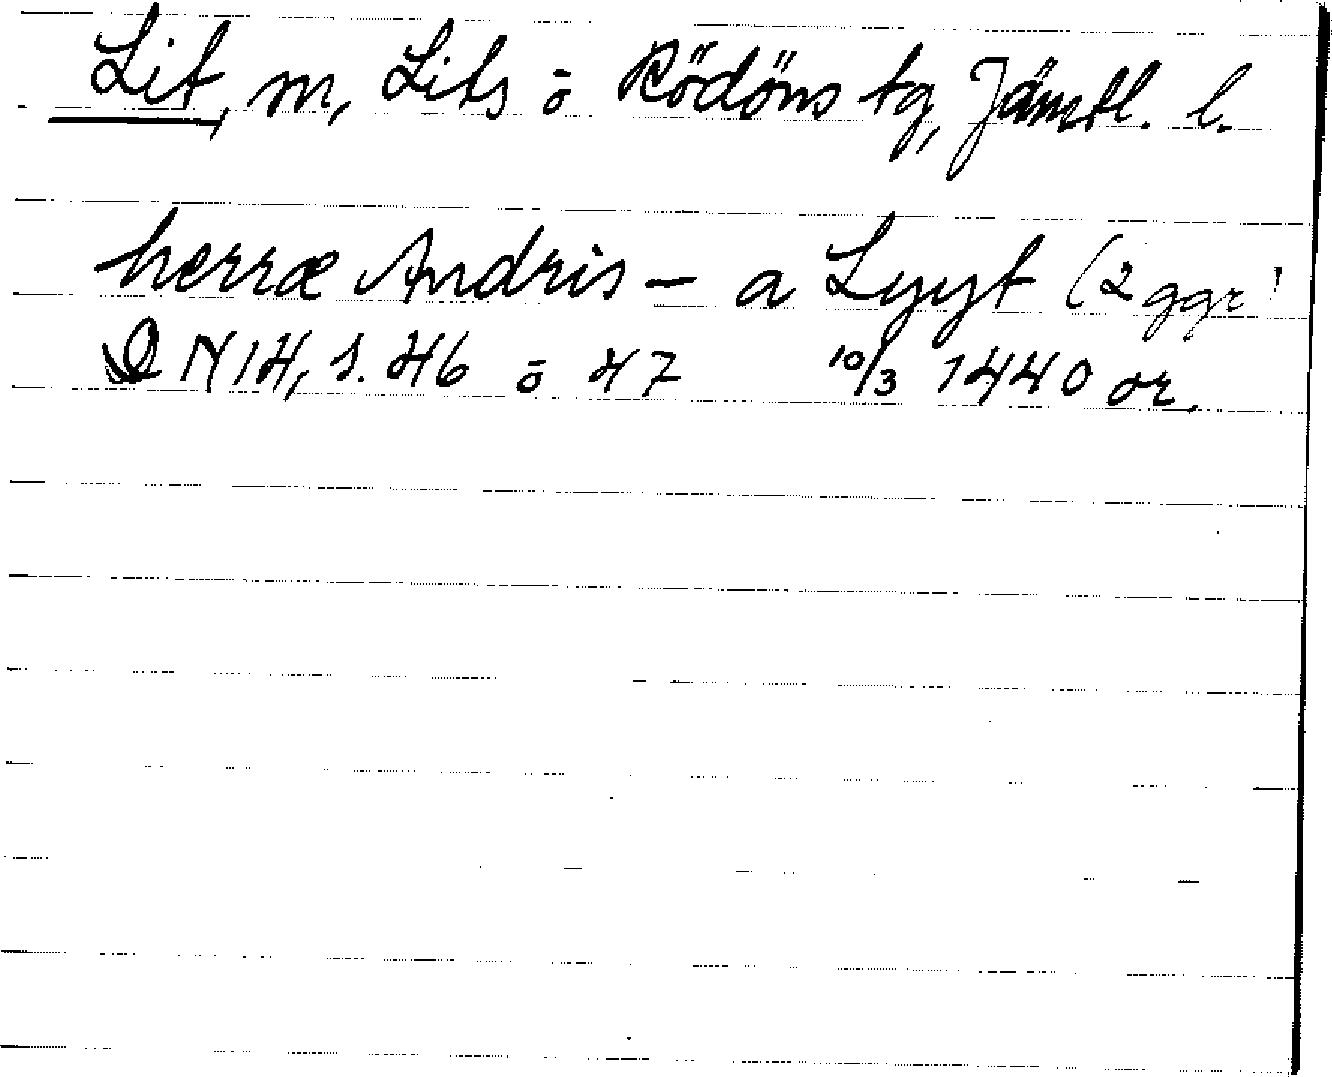 Lit, m, Lits o Rödöns tg, Jämtl. l.
herræ Andris - a Lyyt (2 ggr)
DN 14, s. 46 o 47 10/3 1440 or.